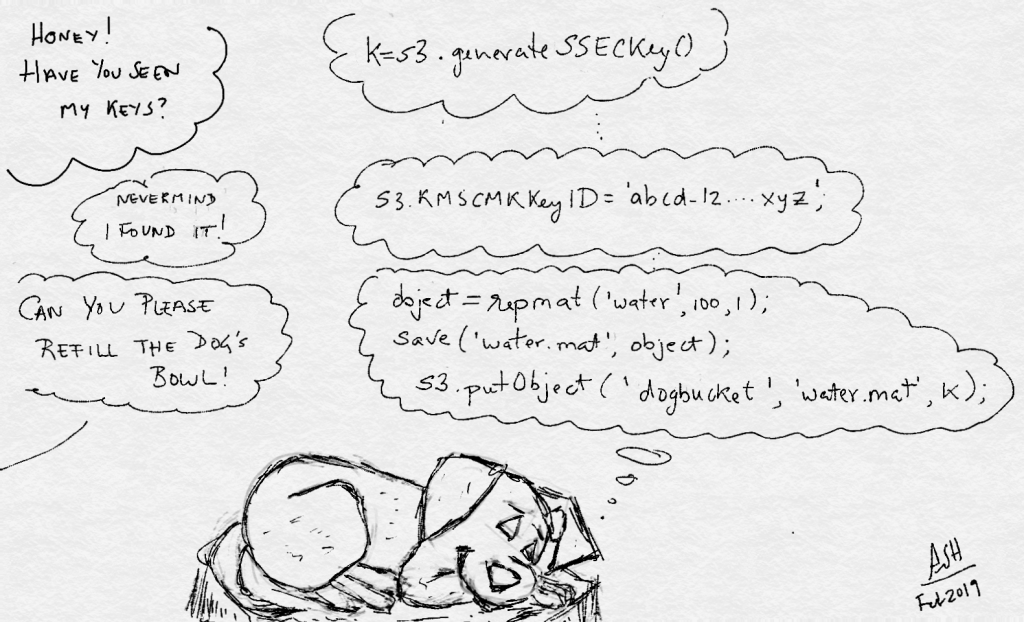 HONEY!
HAVE YOU SEEN
MY KEYS?
NEVERMIND
I FOUND IT!
CAN YOU PLEASE
REFILL THE DOG'S
BOWL!
K=s3.generateSSECKey()
s3.KMSCMKKeyID='abcd-12....xyz';
object=repmat('water',100,1);
save('water.mat', object);
s3.putObject('dogbucket','water.mat',K);
ASH
Feb 2019